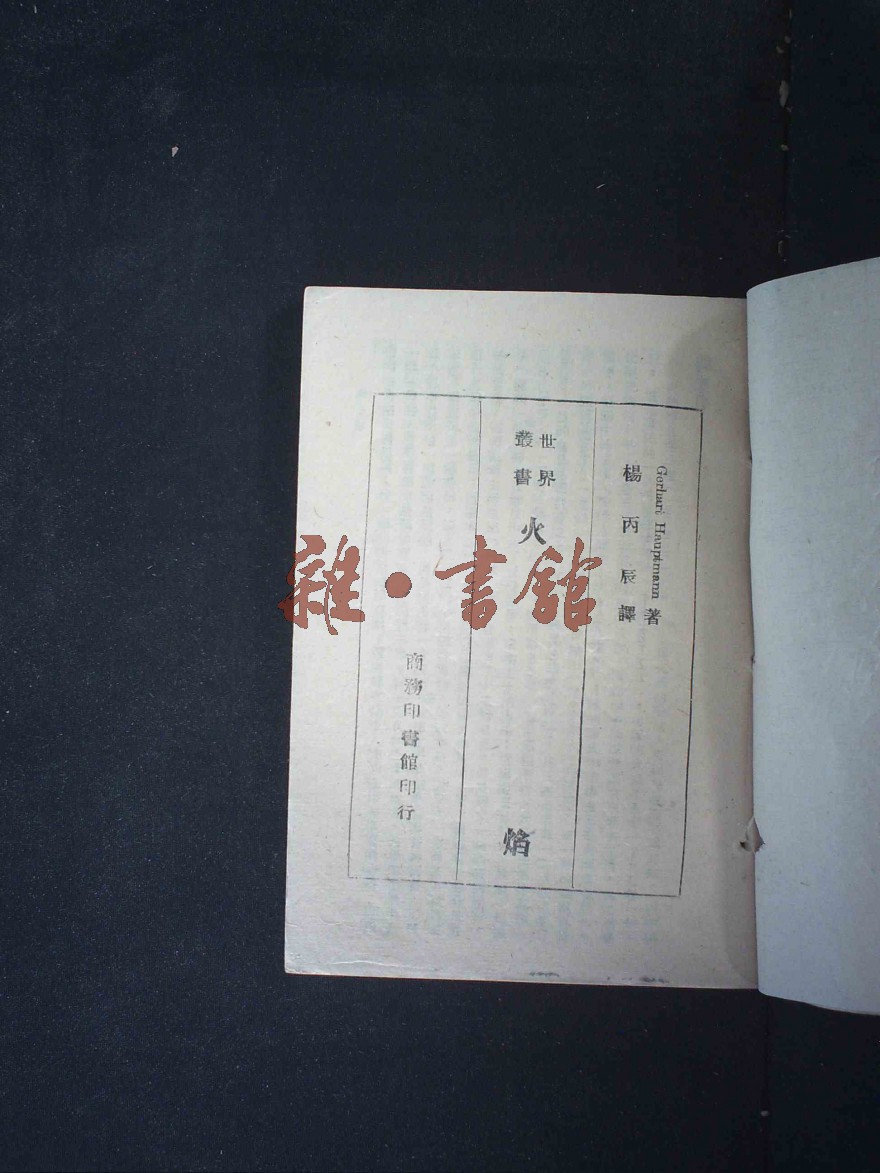 Gerhart Hauptmann 著
楊丙辰譯
世界
叢書
火焰
商務印書館印行
雜·書館